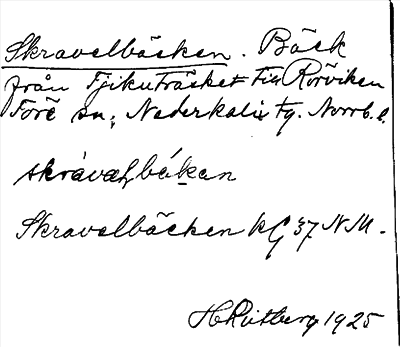 Skravelbäcken. Bäck
från Fjikuträsket till Rörviken
Töre sn; Nederkalix tg. Norrb. l.
skràvəlbékan
Skravelbäcken kG 37 N.M.
H Ruitberg 1925